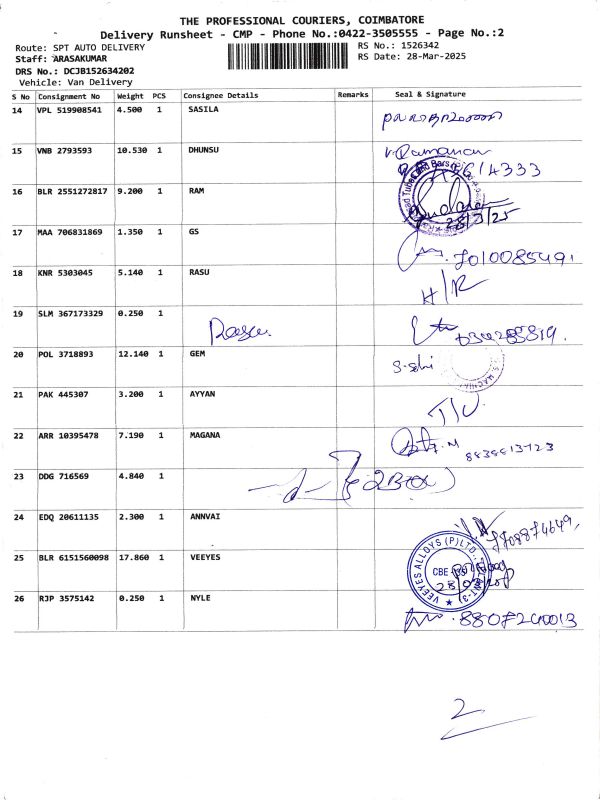 THE PROFESSIONAL COURIERS, COIMBATORE
Delivery Runsheet - CMP - Phone No.:0422-3505555 - Page No.:2
Route: SPT AUTO DELIVERY
RS No.: 1526342
Staff: ARASAKUMAR
RS Date: 28-Mar-2025
DRS No.: DCJB152634202
Vehicle: Van Delivery
S No Consignment No Weight PCS Consignee Details Remarks Seal & Signature
14 VPL 519908541 4.500 1 SASILA
15 VNB 2793593 10.530 1 DHUNSU
V. Ramanan
16 BLR 2551272817 9.200 1 RAM
28/3/25
17 MAA 706831869 1.350 1 GS
7010085491.
18 KNR 5303045 5.140 1 RASU
H/R
19 SLM 367173329 0.250 1
Rasu.
20 POL 3718893 12.140 1 GEM
21 PAK 445307 3.200 1 AYYAN
22 ARR 10395478 7.190 1 MAGANA
23 DDG 716569 4.840 1
24 EDQ 20611135 2.300 1 ANNVAI
25 BLR 6151560098 17.860 1 VEEYES
VEEYES ALLOYS (P) LTD.
CBE
26 RJP 3575142 0.250 1 NYLE
2